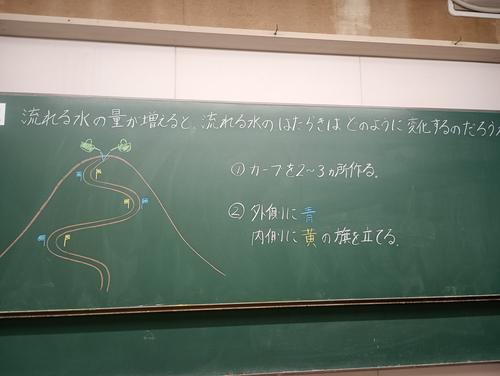 流れる水の量が増えると、流れる水のはたらきはどのように変化するのだろうか
① カーブを2~3ヵ所作る。
② 外側に青
内側に黄の旗を立てる。